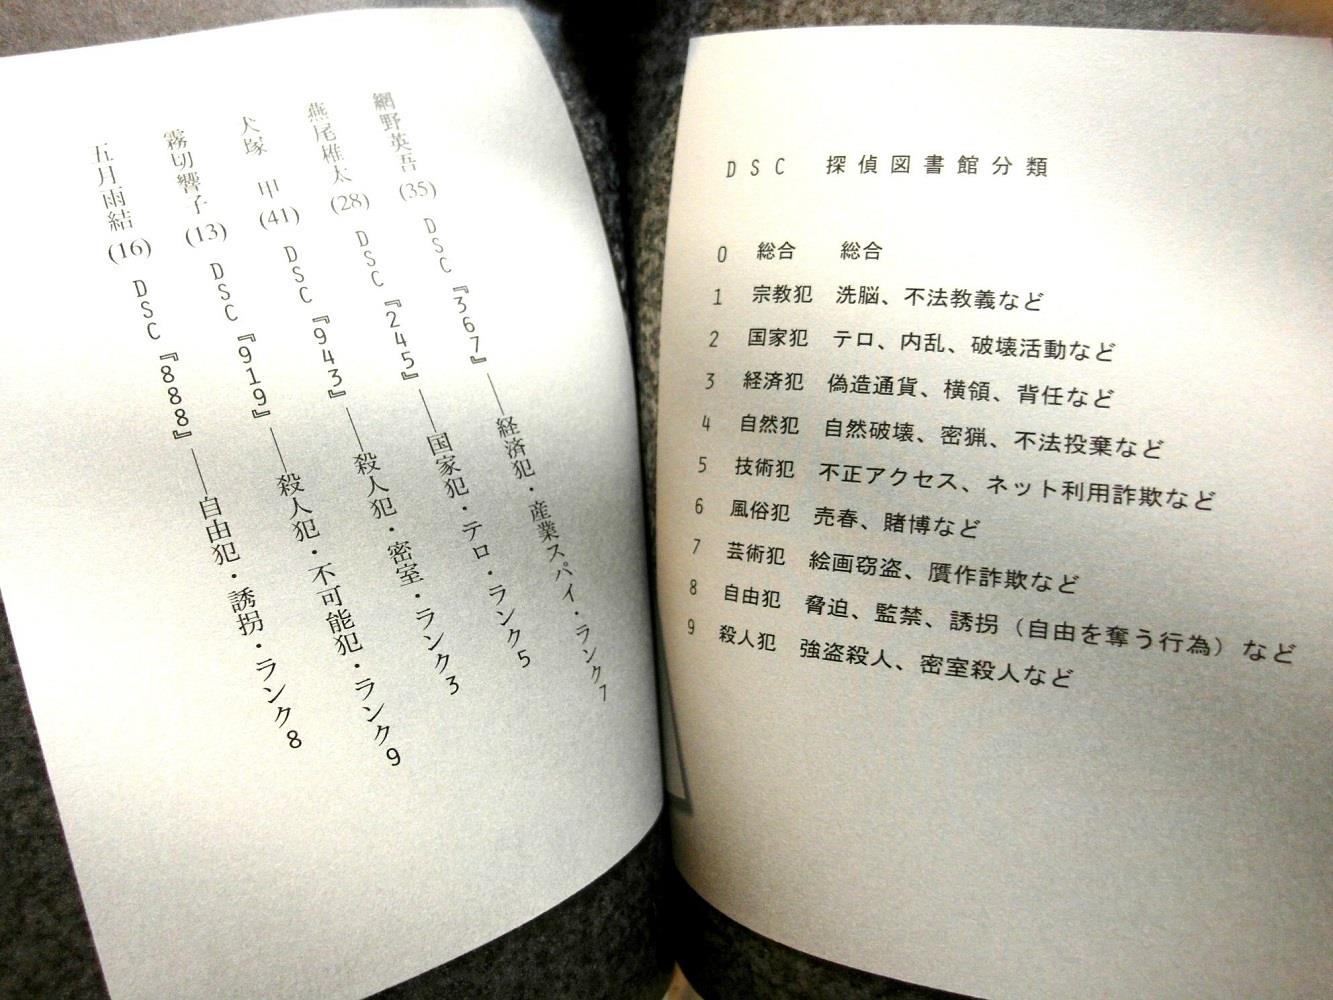 網野英吾(35) DSC『367』――経済犯・産業スパイ・ランク7
燕尾椎太(28) DSC『245』――国家犯・テロ・ランク5
犬塚 甲(41) DSC『943』――殺人犯・密室・ランク3
霧切響子(13) DSC『919』――殺人犯・不可能犯・ランク9
五月雨結(16) DSC『888』――自由犯・誘拐・ランク8
DSC 探偵図書館分類
0 総合 総合
1 宗教犯 洗脳、不法教義など
2 国家犯 テロ、内乱、破壊活動など
3 経済犯 偽造通貨、横領、背任など
4 自然犯 自然破壊、密猟、不法投棄など
5 技術犯 不正アクセス、ネット利用詐欺など
6 風俗犯 売春、賭博など
7 芸術犯 絵画窃盗、贋作詐欺など
8 自由犯 脅迫、監禁、誘拐（自由を奪う行為）など
9 殺人犯 強盗殺人、密室殺人など